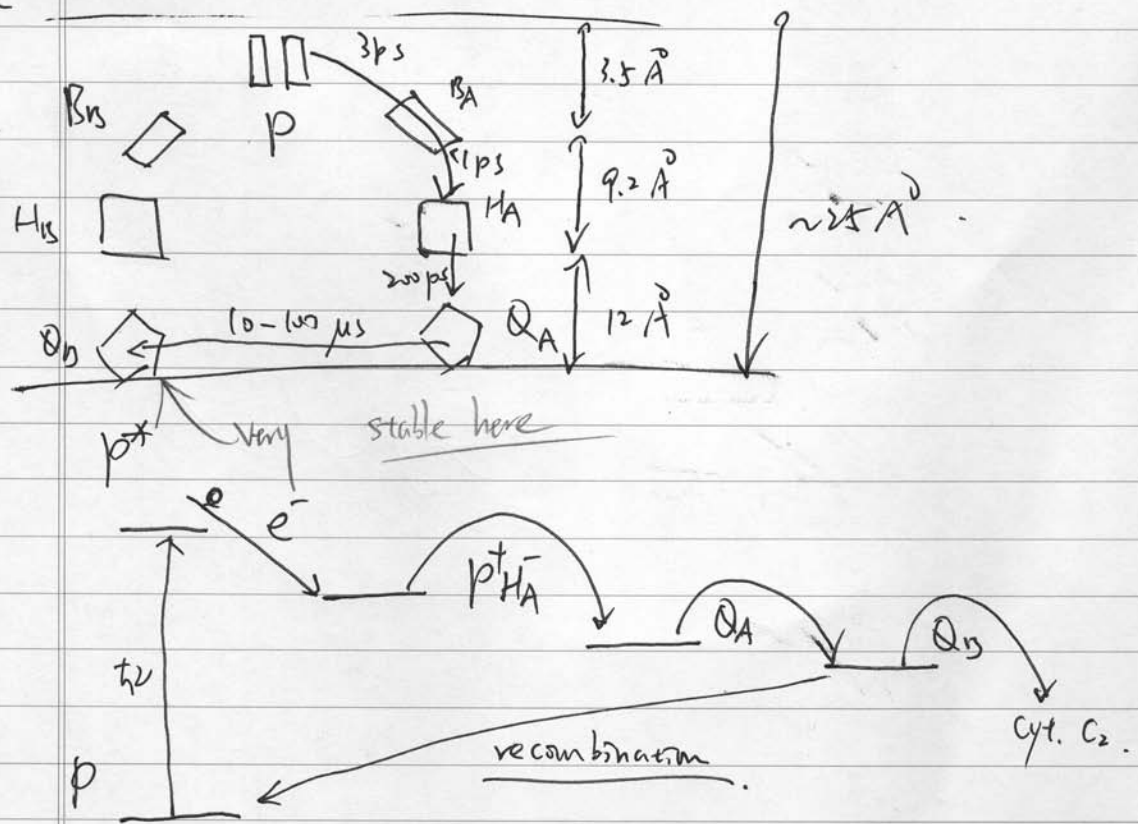 3ps
3.5 Å
B_B
P
B_A
<1ps
9.2 Å
H_B
H_A
~25 Å
200ps
Q_B
10-100 μs
Q_A
12 Å
P*
very stable here
e⁻
P⁺H_A⁻
Q_A
Q_B
ħν
Cyt. C₂.
recombination.
P